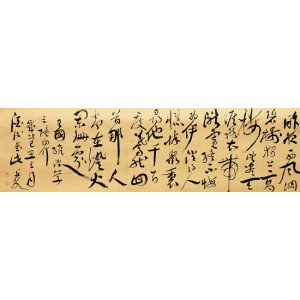 昨夜西風凋
碧樹獨上高
樓望盡天
涯路衣帶
漸寬終不悔
為伊消得人
憔悴眾裏
尋他千百
度驀然回
首那人
卻在燈火
闌珊處
王國維治學
三境界
己丑三月